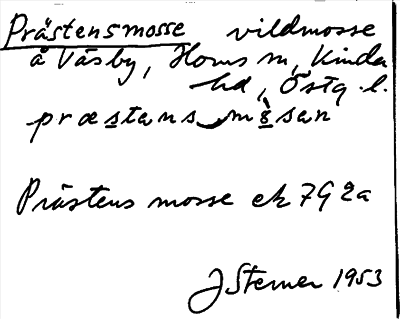 Prästensmosse vildmosse
å Väsby, Horns sn, Kinda
hd, Östg. l.
præstens mòsan
Prästens mosse ek 7G 2a
J Sterner 1953